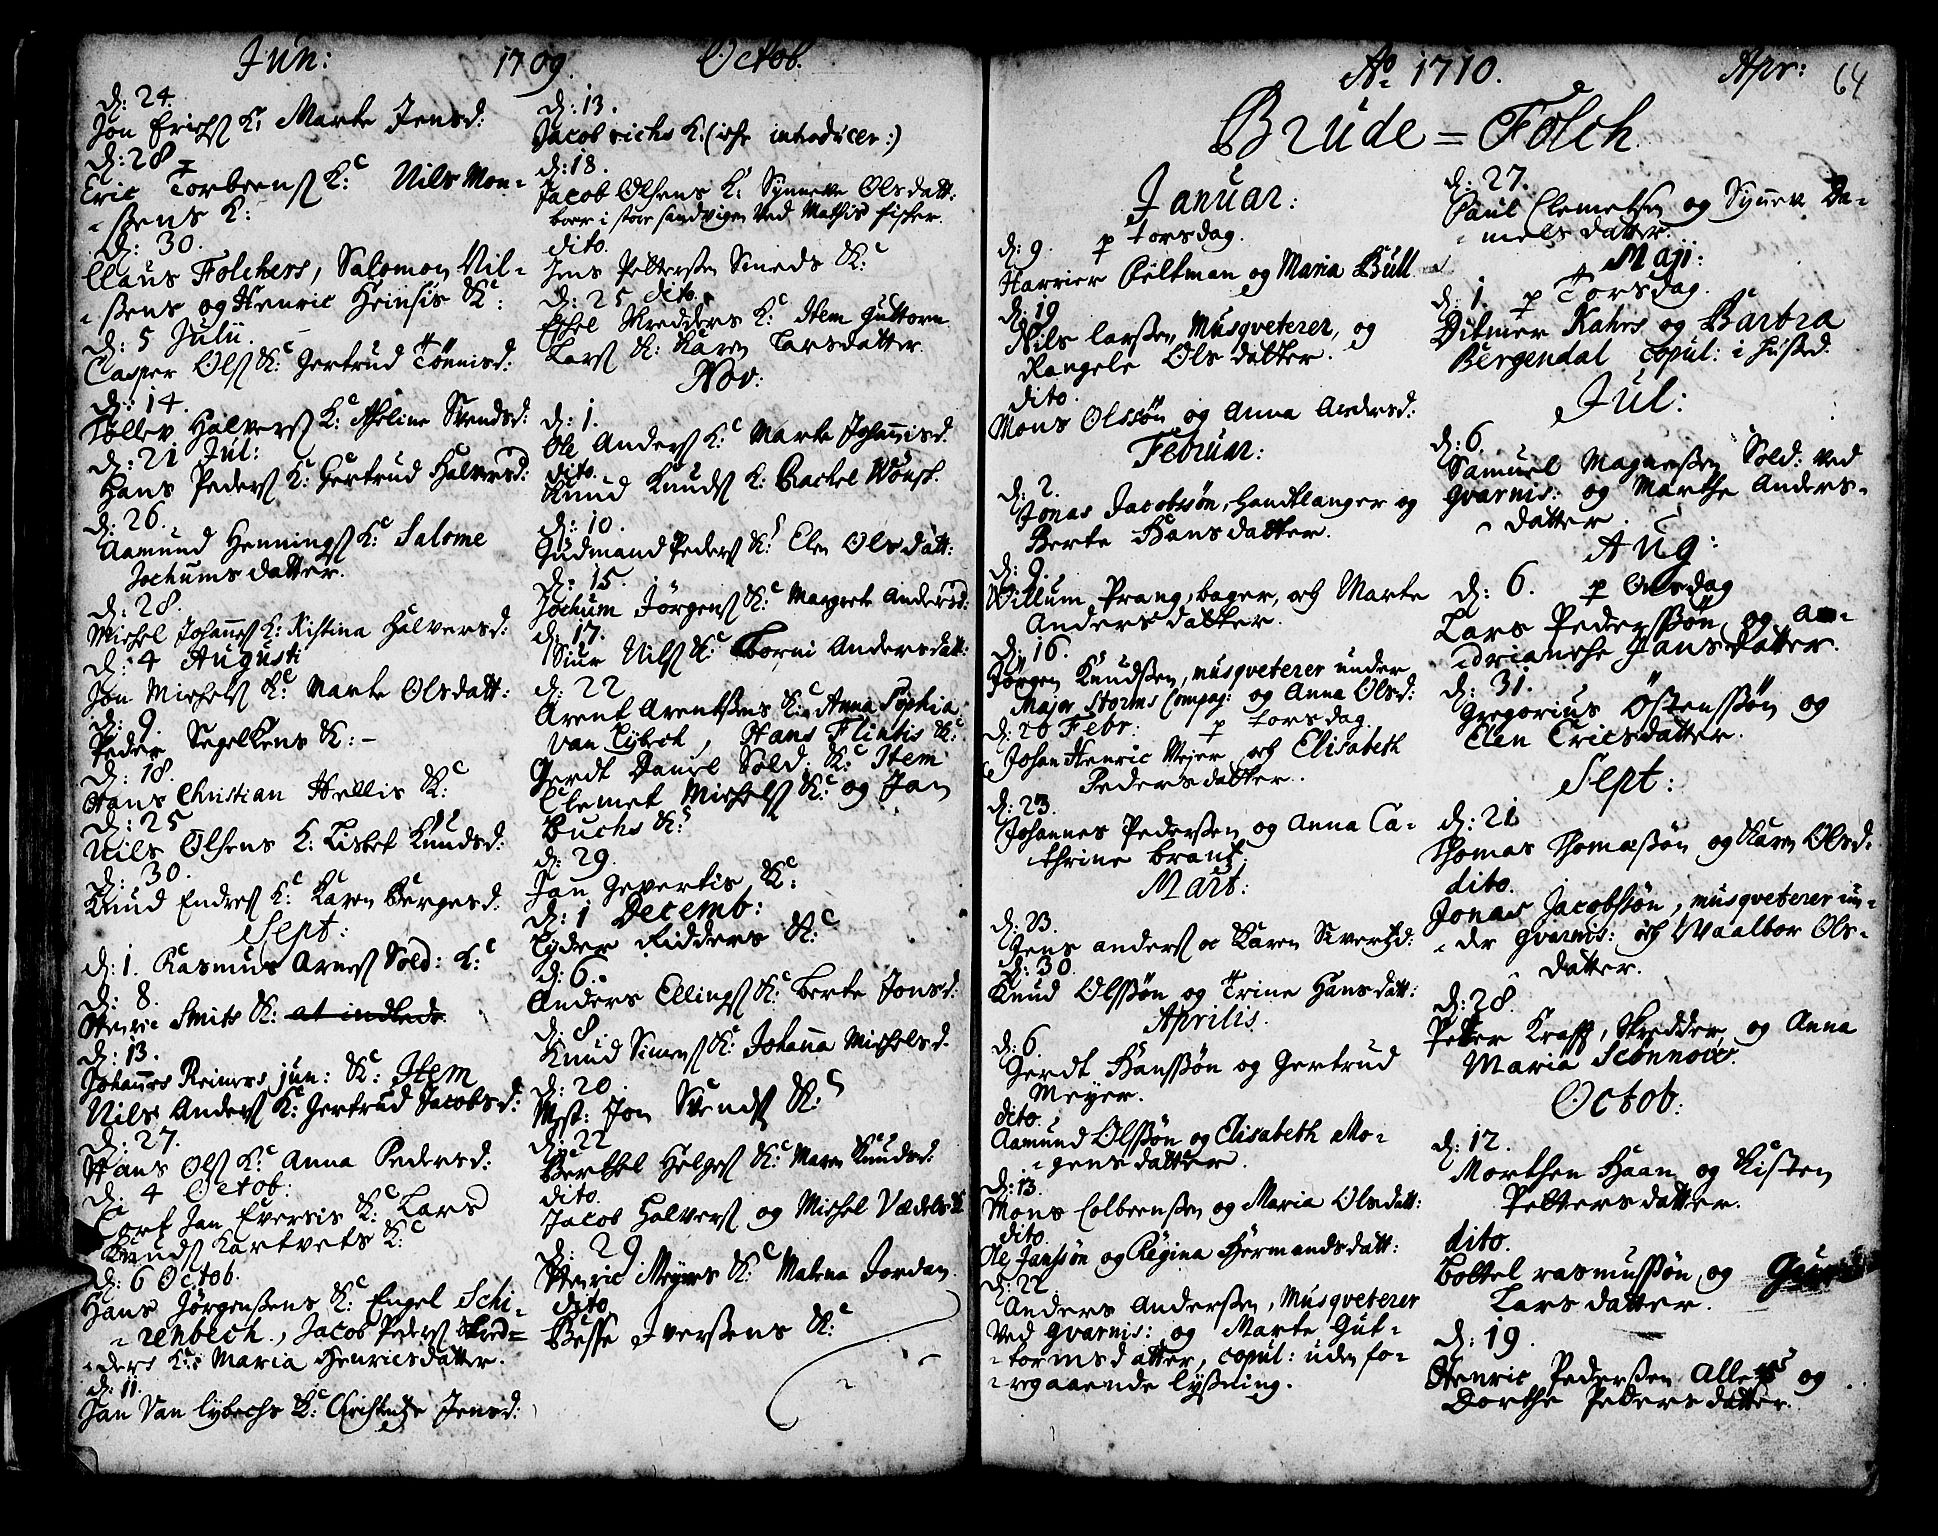 Jun: 1709.
d: 24.
Jon Erichs K: Marte Jensd:
d: 28
Eric Torbeens K: Nils Mon-
-sens K:
d: 30.
Claus Folchers, Salomon Nil-
-sens og Henric Heinsis K:
d: 5 Julii.
Casper Ols K: Gertrud Tönnisd:
d: 14.
Tollev Halvers K: Aseline Svendsd:
d: 21 Jul:
Hans Peders K: Gertrud Halversd:
d: 26.
Aamund Hennings K: Salome
Jochumsdatter.
d: 28.
Michel Johannes K: Kistina Halversd:
d: 4 Augusti
Jon Michels K: Marte Olsdatt:
d: 9.
Peder Segelkens K: -
d: 18.
Hans Christian Hellis K:
d: 25
Nils Olsens K: Lisbet Knudsd:
d: 30.
Knud Endres K: Karen Børgesd:
Sept:
d: 1. Rasmus Arnes Sold: K:
d: 8.
Henric Smits K: at indlede
d: 13.
Johannes Reiners jun: K: Item
Nils Anders K: Gertrud Jacobsd:
d: 27.
Hans Ols K: Anna Pedersd:
d: 4 Octob:
Cort Jan Eversis K: Lars
Knuds Kartvets K:
d: 6 Octob.
Hans Jørgensens K: Engel Schi-
-renbech., Jacob Peders Skred-
-ders K: Maria Henricsdatter.
d: 11.
Jan Van Lybechs K: Jensd:
Octob.
d: 13.
Jacob richs K: (iche introducer:)
d: 18.
Jacob Olsens K: Synneve Olsdatt:
boer i store sandvigen ved Mathis fisker.
dito.
Jens Pettersen Smeds K:
d: 25 dito.
Ethel Skredders K: Item Guttorm
Lars K: Karen Larsdatter.
Nov:
d: 1.
Ole Anders K: Marte Johannisd.
dito.
Knud Knuds K: Rachel Wønsk.
d: 10.
Gudmand Peders K: Elen Olsdatt:
d: 15.
Jochum Jörgens K: Margrete Andersd:
d: 17.
Siur Nils K: Borni Andersdatt:
d: 22
Arent Arentsens K: Anna Sophia
van Lybech, Hans Flintis K:
Gerdt Daniel Sold: K: Item
Clemet Michels K: og Jan
Buchs K:
d: 29.
Jan Gevertis K:
d: 1 Decemb:
Lyder Ridders K:
d: 6.
Anders Ellings K: Berte Jonsd:
d: 8.
Knud Simens K: Johanna Michelsd.
d: 20.
Mst: Jon Svends K:
d: 22
Berthel Helges K: Maren Knudsd:
dito.
Jacob Halvers og Michel Vædels K
d: 29
Henric Meyers K: Malena Jordan.
dito
Besse Iversens K:
Aº 1710. Apr: 64
Brude = Folch
Januar:
d: 9. p torsdag.
Harrier Peltman og Maria Bull
d: 19
Nils Larsen, Musqveterer, og
Rangele Olsdatter.
dito.
Mons Olssön og Anna Andersd:
Februar:
d: 2.
Jonas Jacobsøn, Handtlanger og
Berte Hansdatter.
d: 9.
Willum Prang, bager, och Marte
Andersdatter.
d: 16.
Jörgen Knudsen, musqveterer under
Major Storms Compag: og Anna Olsd:
d: 20 Febr: p torsdag.
Johan Henric Mejer och Elisabeth
Pedersdatter.
d: 23.
Johannes Pedersen og Anna Ca-
thrine brant.
Mart:
d: 23.
Jens Anders oc Karen Sivertsd:
d: 30.
Knud Olssøn og Trine Hansdatt:
Aprilis.
d: 6.
Gerdt Hanssøn og Gertrud
Meyer.
dito.
Aamund Olssøn og Elisabeth Mo-
-gensdatter.
d: 13.
Mons Colbeensen og Maria Olsdatt:
dito.
Ole Janssøn og Regina Hermandsdatt:
d: 22
Anders Andersen, Musqveterer
ved gvarnis: og Marte Gut-
-tormsdatter, copul: uden fo-
-regaaende lysning.
d: 27.
Paul Clemetsen og Synnev Da-
-nielsdatter.
Maji:
d: 1. p Torsdag.
Ditmer Kahrs og Barbra
Bergendal copul: i Huset.
Jul:
d: 6.
Samuel Magnessen Sold: ved
gvarnis: og Marthe Anders-
-datter.
Aug:
d: 6. p Onsdag
Lars Pederssøn og A-
-drianche Hansdatter.
d: 31.
Gregorius Östenssøn og
Elen Ericsdatter.
Sept:
d: 21
Thomas Thomassøn og Karen Olsd:
dito.
Jonas Jacobssøn, musqveterer un-
-der gvarnis: och Waalbor Ols-
datter.
d: 28.
Petter Krafft, Skredder, og Anna
Maria
Octob:
d: 12.
Morthen Haan og Kisten
Pettersdatter.
dito.
Boltel rasmussøn og Guri
Larsdatter.
d: 19.
Henric Pedersen Allers og
Dorthe Pedersdatter.